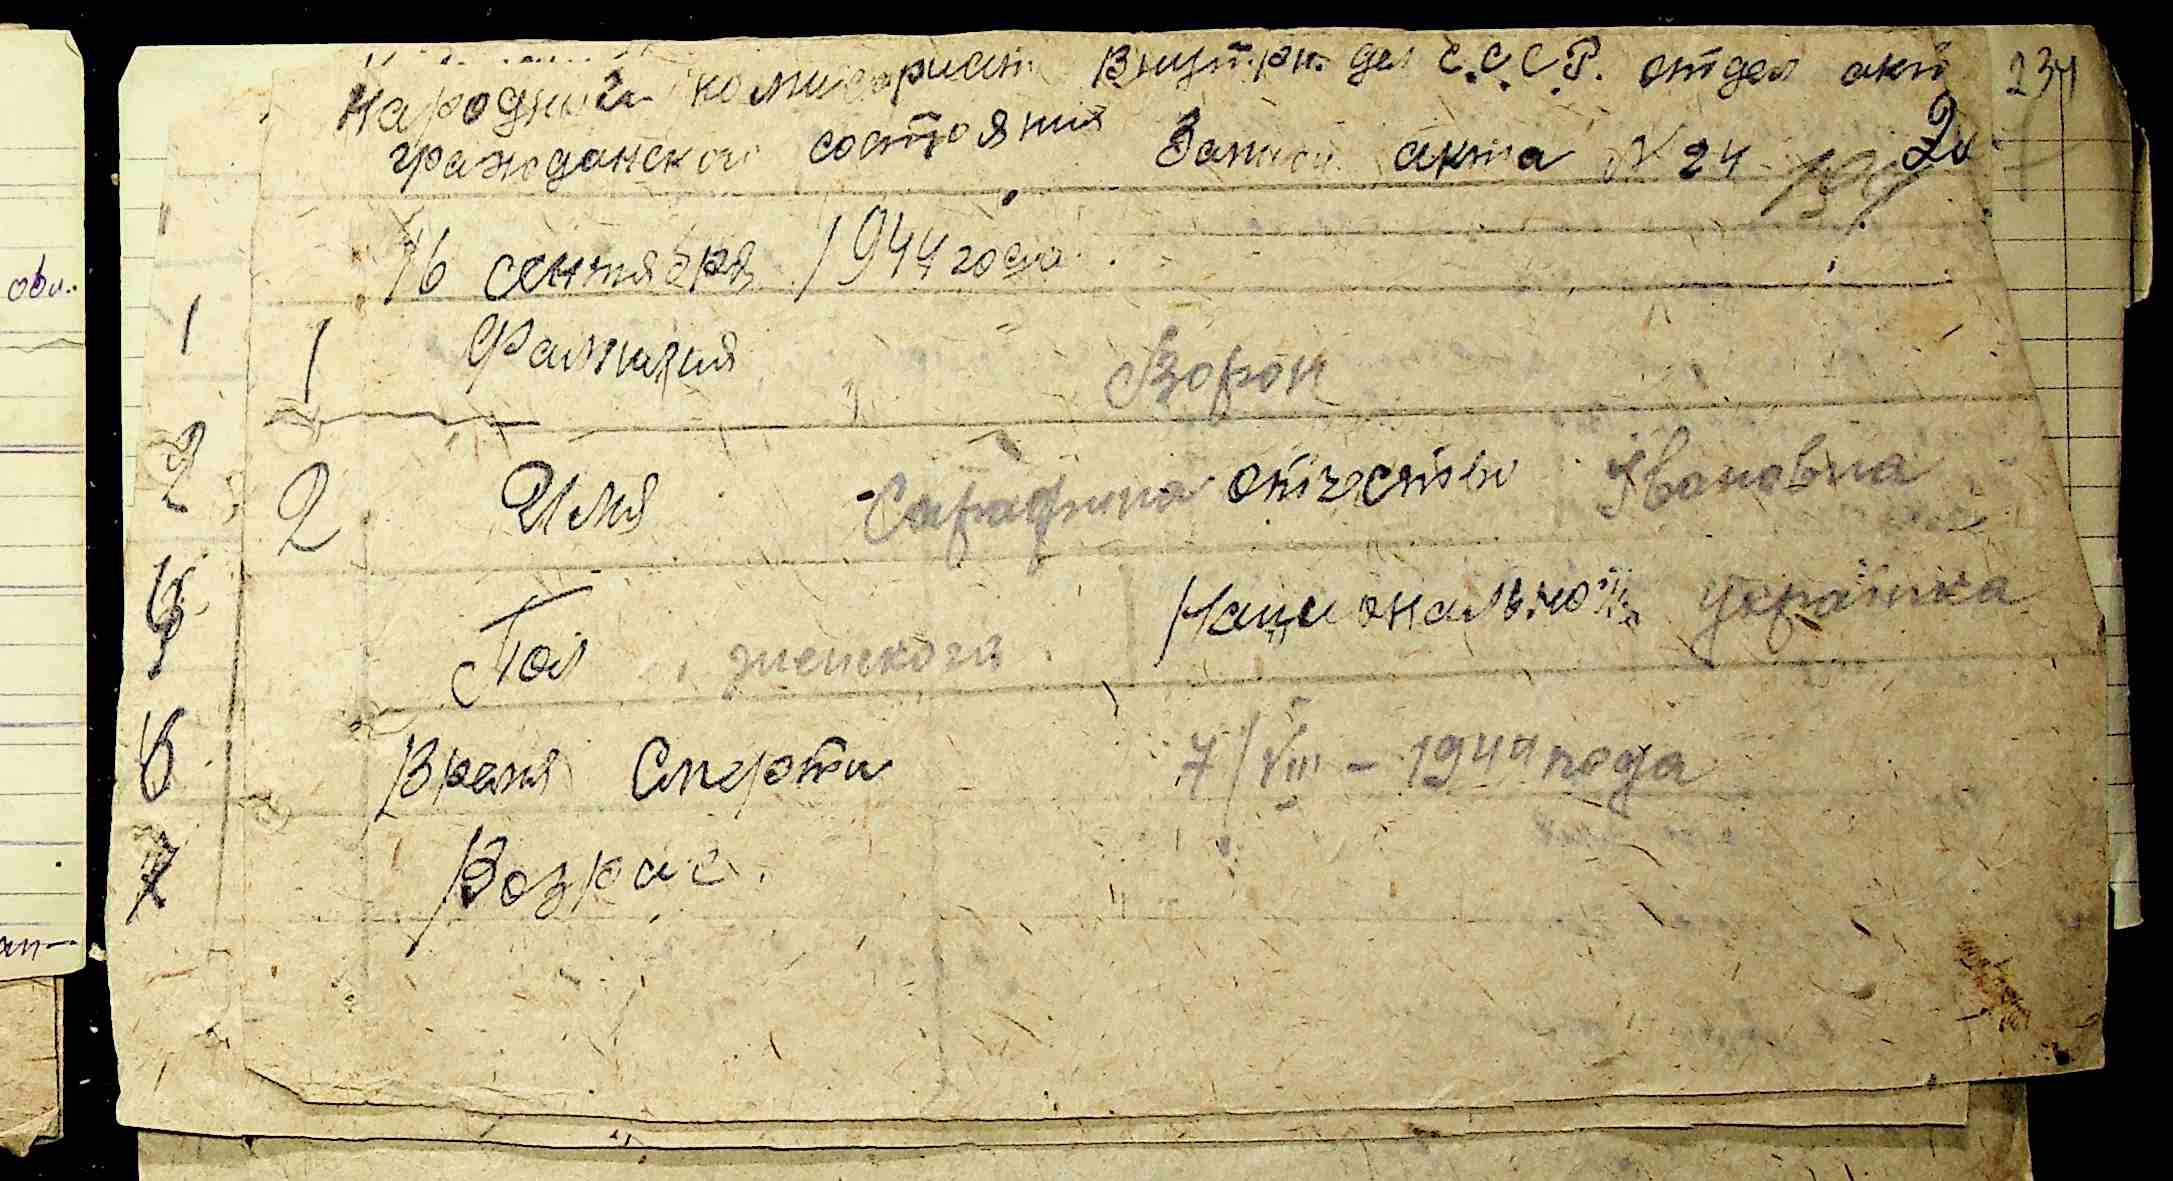 Народний комисариат Внутрн. дел С.С.С.Р. отдел акт 234
гражданского состояния Записи акта № 24
16 сентября 1944 года
1 1 Фамилия Ворон
2 2 Имя Сарафина отчество Івановна
Пол женского Национальность українка
6 Время Смерти 7/VIII - 1944 года
7 Возрас.
оби.